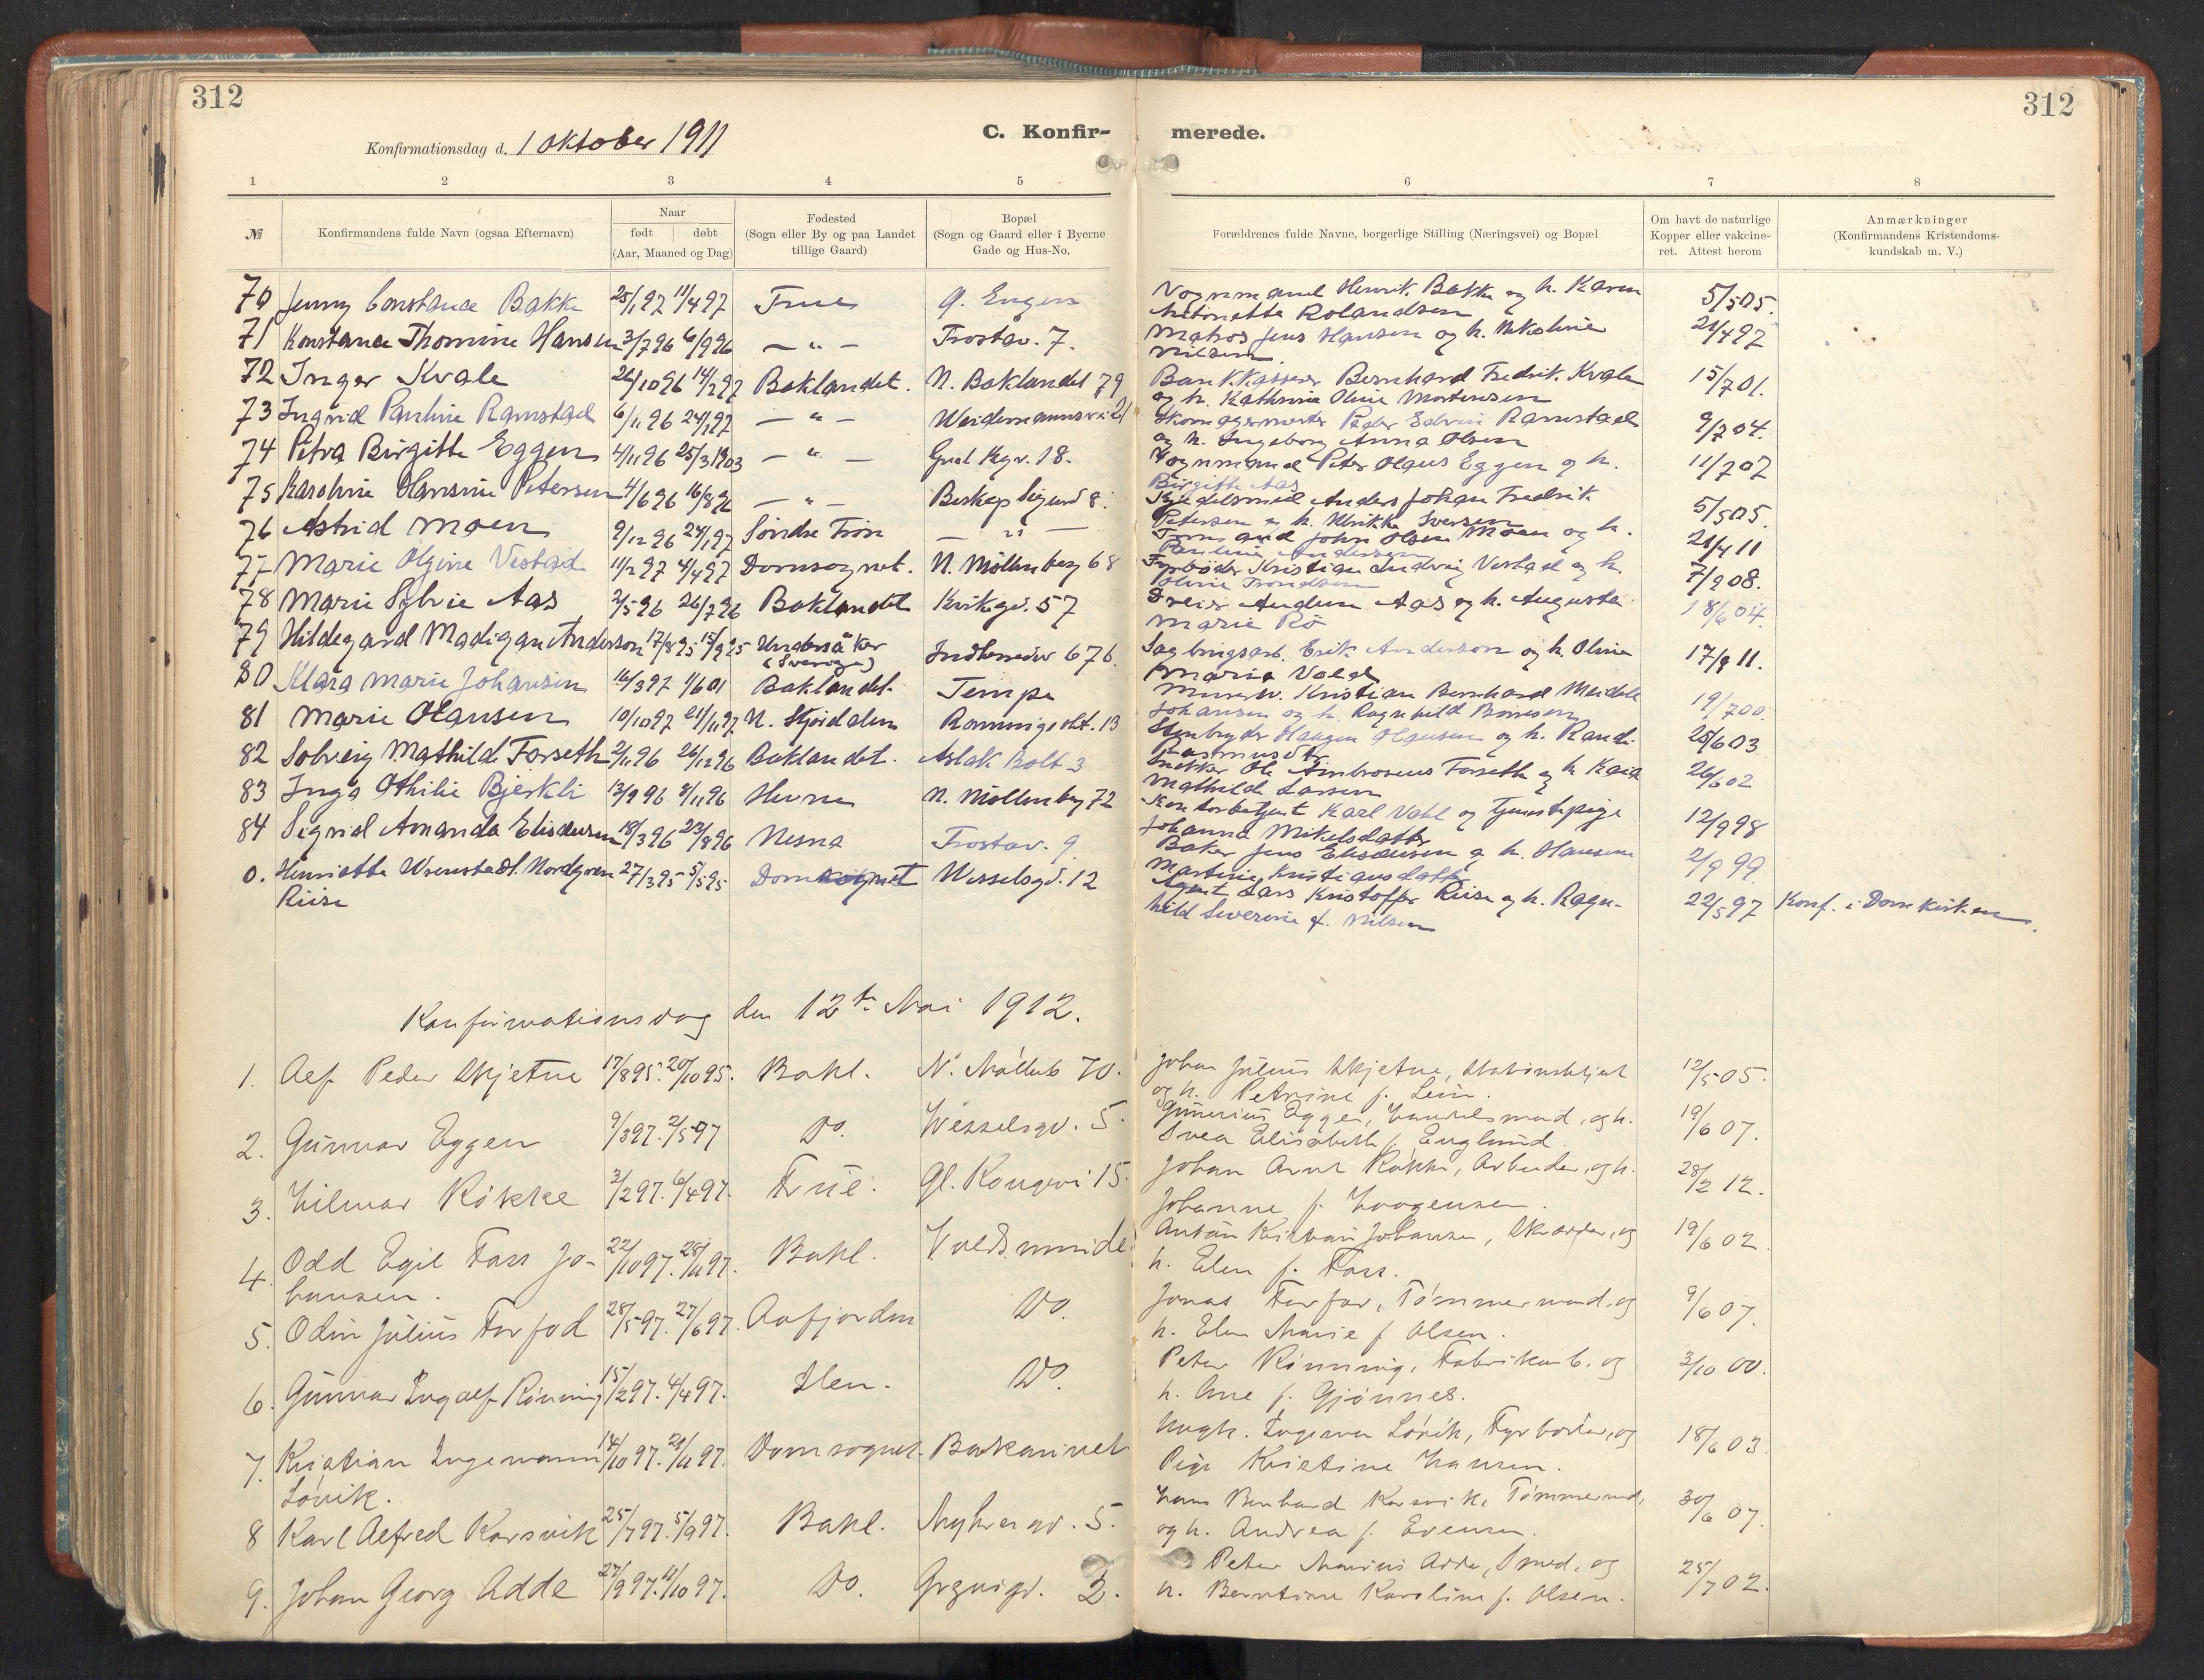 312
Konfirmationsdag d. 1 Oktober 1911
C. Konfir-
merede.
312
1 2 3 4 5 6 7 8
№
Konfirmandens fulde Navn (ogsaa Efternavn)
Naar
født døbt
(Aar, Maaned og Dag)
Fødested
(Sogn eller By og paa Landet
tillige Gaard)
Bopæl
(Sogn og Gaard eller i Byerne
Gade og Hus-No.
Forældrenes fulde Navne, borgerlige Stilling (Næringsvei) og Bopæl
Om havt de naturlige
Kopper eller vakcine-
ret. Attest herom
Anmærkninger
(Konfirmandens Kristendoms-
kundskab m. V.)
70 Jenny Constance Bakke 25/1 97 11/4 97 Frue g. Eugen Vognmand Henrik Bakke og h. Karen 5/5 05.
Antonette Rolandsen
71 Konstance Thomine Hansen 3/7 96 6/9 96 — " — Frostav. 7. Matros Jens Hansen og h. Nikoline 21/4 97
Nilsen
72 Inger Kvale 26/10 96 14/2 97 Baklandet. N. Baklandet 79 Bankkasserer Bernhard Fredrik Kvale 15/7 01.
og h. Kathrine Oline Mortensen
73 Ingrid Pauline Ramstad 6/11 96 24/1 97 — " — Weidemannsvei 21 Skomagermester Peder Edvin Ramstad 9/7 04.
og h. Ingeborg Anna Olsen
74 Petra Birgitte Eggen 4/11 96 25/3 1903 — " — Gml Kgv. 18. Vognmand Peter Olaus Eggen og h. 11/7 07
Birgitte Aas
75 Karoline Hansine Petersen 4/6 96 16/8 96 — " — Biskop Sigurd 8. Kjedelsmed Anders Johan Fredrik 5/5 05.
Petersen og h. Ulrikke Iversen
76 Astrid Moen 9/12 96 24/1 97 Søndre Fron — " — John Olsen Moen og h. 21/4 11
Pauline Andersen
77 Marie Olgine Vestad 11/2 97 4/4 97 Domsognet. N. Møllenberg 68 Fyrbøder Kristian Ludvig Vestad og h. 7/9 08.
Oline Trondsen
78 Marie Sylvie Aas 2/5 96 26/7 96 Baklandet Kirkegd. 57 Dreier Andin Aas og h. Augusta 18/6 04.
Marie Rø
79 Hildegard Madigan Anderson 17/8 95 15/9 95 Undersåker Indherredsv 67b. Sagbrugsarb. Erik Anderson og h. Oline 17/9 11.
(Sverige) Maria Vold
80 Klara Marie Johansen 16/3 97 1/6 01 Baklandet. Tempe Murersv. Kristian Bernhard Meidell 19/7 00.
Johansen og h. Ragnhild Børresen
81 Marie Hansen 10/10 97 21/11 97 N. Stjørdalen Ronnings alt. 13 Stenbryder Haagen Hansen og h. Randi 25/6 03
Rasmusdtr
82 Solveig Mathilde Forseth 2/11 96 26/12 96 Baklandet. Aslak Bolt 3 Snekker Ole Ambrosius Forseth og h. Kaia 26/6 02
Mathilde Larsen
83 Inga Othilie Bjerkli 13/9 96 8/11 96 Hevne N. Møllenberg 72 Kontorbetjent Karl Vahl og Tjenestepige 12/9 98
Johanna Mikelsdatter
84 Sigrid Amanda Elisæusen 18/3 96 23/8 96 Nesna Frostav. 9 Baker Jens Elisæusen og h. Hansine 2/9 99.
Martine Kristiansdatter
0. Henriette Wrenstedt Nordgren 27/3 95 5/5 95 Domsognet Wesselsgd. 12 Agent Lars Kristoffer Riise og h. Ragn- 22/5 97 Konf. i Domkirken.
Riise hild Severine f. Nilsen
Konfirmationsdag den 12te Mai 1912.
1. Alf Peder Skjetne 17/8 95. 20/10 95. Bakl. N. Møllenb 70. Johan Julius Skjetne, Stationsbetjent 12/5 05.
og h. Petrine f. Lein.
2. Gunnar Eggen 9/3 97. 2/5 97 Do. Wesselsgd. 5. Gunerius Eggen, Handelsmand, og h. 19/6 07.
Svea Elisabeth f. Englund.
3. Hilmar Røkke 3/2 97. 6/4 97. Frue. Gl. Kongevei 15. Johan Arnt Røkke, Arbeider, og h. 28/2 12.
Johanne f. Haagensen.
4. Odd Egil Foss Jo- 22/10 97. 28/11 97. Bakl. Voldsminde Anton Kristian Johansen, Skrædder, og 19/6 02.
hansen. h. Elen f. Foss.
5. Odin Julius Forfod 28/5 97. 27/6 97. Aafjorden Do. Jonas Forfod, Tømmermand, og 9/6 07.
h. Elen Marie f Olsen.
6. Gunnar Ingolf Rønning 15/2 97. 4/4 97. Ilen. Do. Peter Rønning, Fabrikarb. og 3/10 00.
h. Ane f. Gjønnes.
7. Kristian Ingemann 14/10 97. 21/11 97. Domsognet. Bakaunet Ungk. Ingemar Løvik, Fyrbøder, og 18/6 03.
Løvik. Pige Kristine Hansen.
8 Karl Alfred Korsvik 25/7 97. 5/9 97. Bakl. Nyhusgd. 5. Hans Bernhard Korsvik, Tømmermd, 30/6 07.
og h. Andrea f. Evensen.
9. Johan Georg Adde 27/9 97. 11/10 97. Do. Gregusgd. 2. Peter Marius Adde, Smed, og 25/7 02.
h. Berntine Karoline f. Olsen.